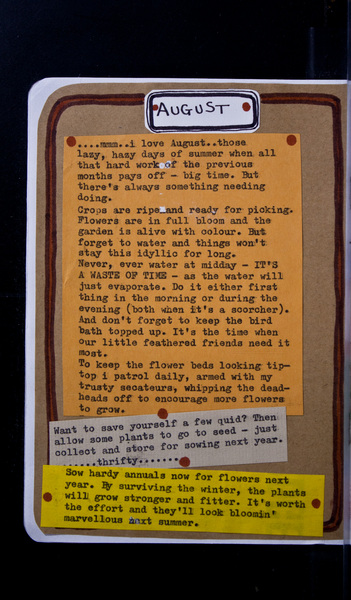 AUGUST
....mmm..i love August..those
lazy, hazy days of summer when all
that hard work of the previous
months pays off - big time. But
there's always something needing
doing.
Crops are ripe and ready for picking.
Flowers are in full bloom and the
garden is alive with colour. But
forget to water and things won't
stay this idyllic for long.
Never, ever water at midday - IT'S
A WASTE OF TIME - as the water will
just evaporate. Do it either first
thing in the morning or during the
evening (both when it's a scorcher).
And don't forget to keep the bird
bath topped up. It's the time when
our little feathered friends need it
most.
To keep the flower beds looking tip-
top i patrol daily, armed with my
trusty secateurs, whipping the dead-
heads off to encourage more flowers
to grow.
Want to save yourself a few quid? Then
allow some plants to go to seed - just
collect and store for sowing next year.
......thrifty.......
Sow hardy annuals now for flowers next
year. By surviving the winter, the plants
will grow stronger and fitter. It's worth
the effort and they'll look bloomin'
marvellous next summer.